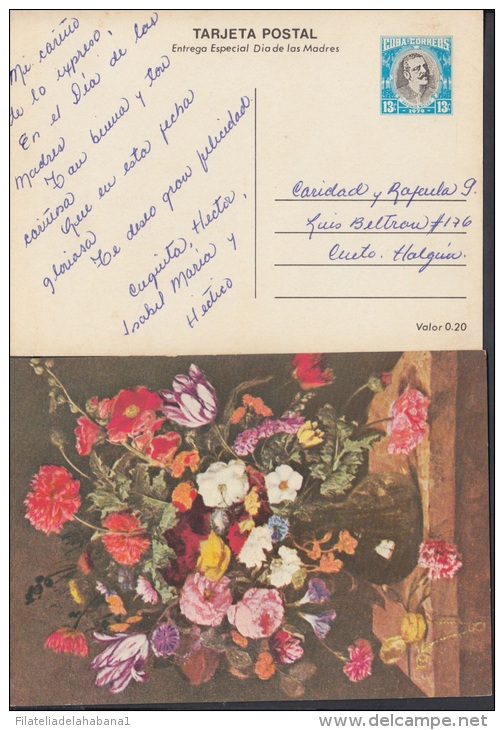 TARJETA POSTAL
Entrega Especial Dia de las Madres
CUBA·CORREOS
13¢ 1979 13¢
Mi cariño
te lo expreso,
En el Día de las
Madres
Tan buena y tan
cariñosa
Que en esta fecha
gloriosa
Te deseo gran felicidad.
Cuquita, Hector,
Isabel María y
Hectico
Caridad y Rafaela G.
Luis Beltran #176
Cueto. Holguín.
Valor 0.20
Filateliadelahabana1
delcampe.net